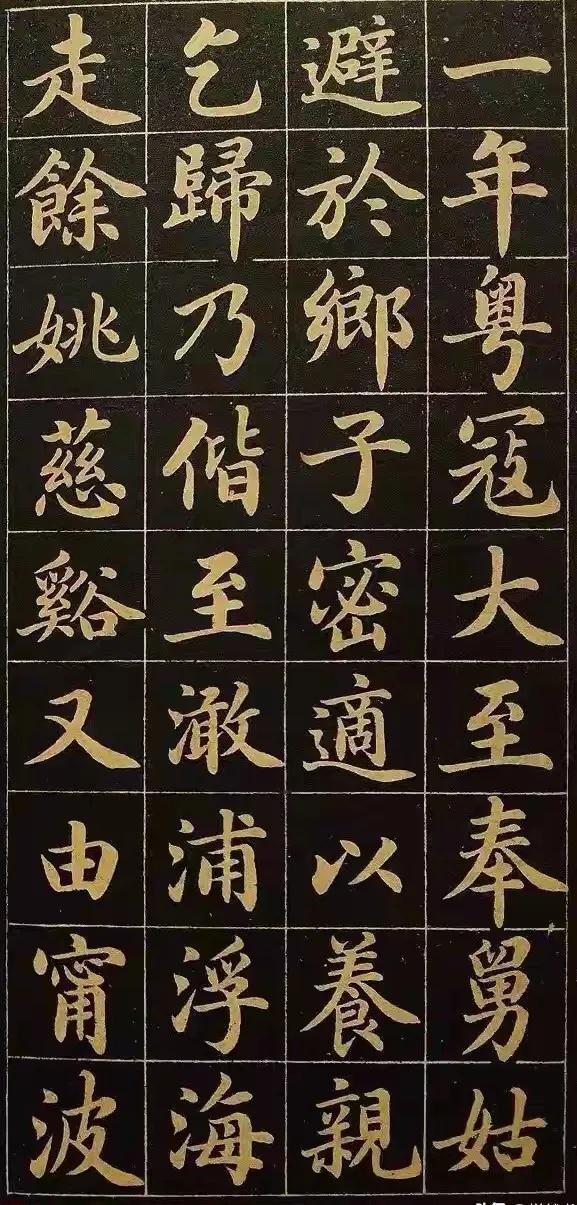 一年粤寇大至奉舅姑
避於鄉子密適以養親
乞歸乃偕至澉浦浮海
走餘姚慈谿又由甯波